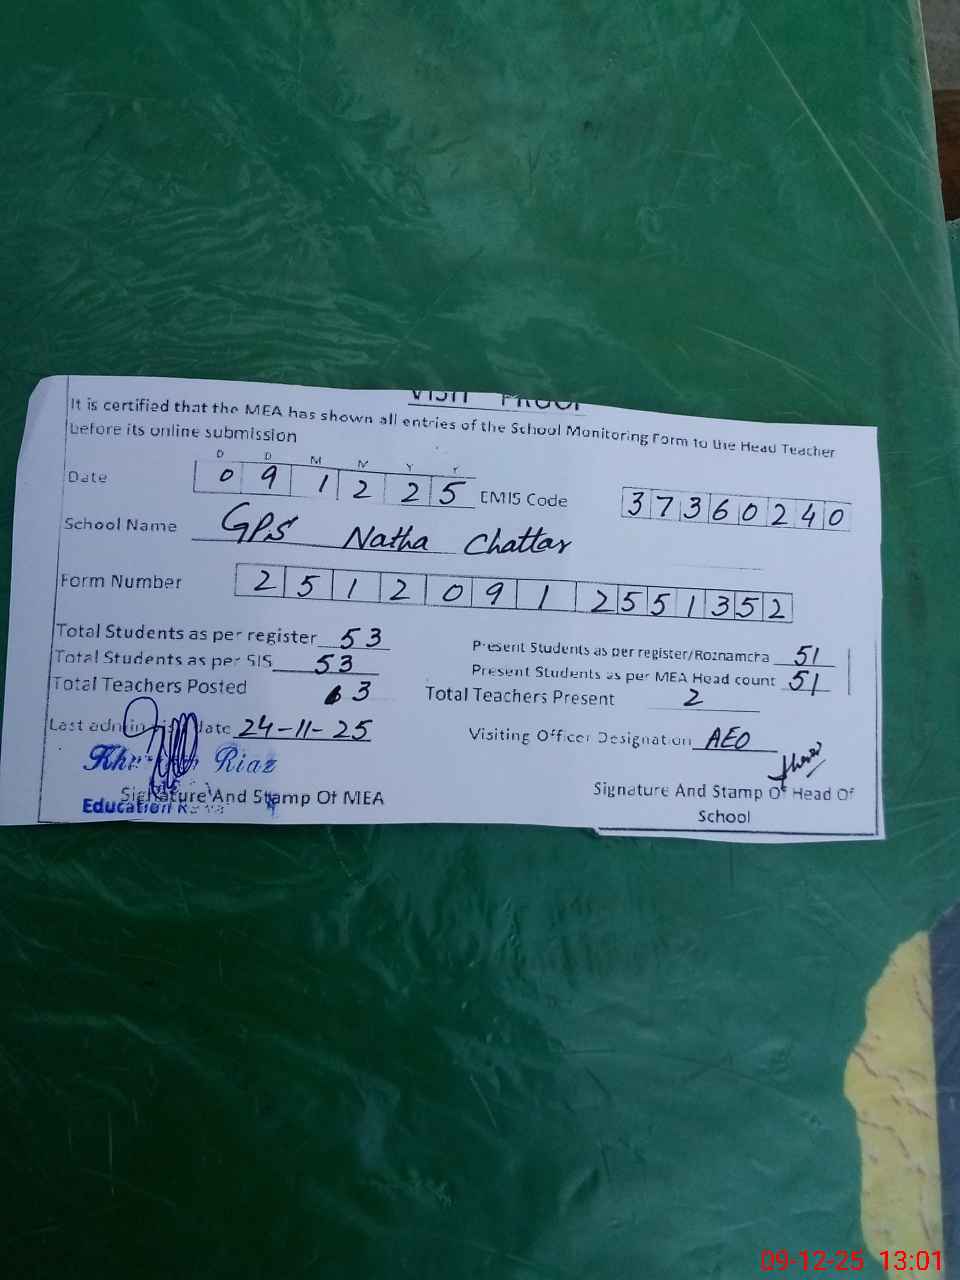 VISIT PROOF
It is certified that the MEA has shown all entries of the School Monitoring Form to the Head Teacher
before its online submission
D D M M Y Y
Date 0 9 1 2 2 5 EMIS Code 3 7 3 6 0 2 4 0
School Name GPS Natha Chattar
Form Number 2 5 1 2 0 9 1 2 5 5 1 3 5 2
Total Students as per register 53 Present Students as per register/Roznamcha 51
Total Students as per SIS 53 Present Students as per MEA Head count 51
Total Teachers Posted 3 Total Teachers Present 2
Last admin date 24-11-25 Visiting Officer Designation AEO
Riaz
Signature And Stamp Of MEA Signature And Stamp Of Head Of
Education School
09-12-25 13:01